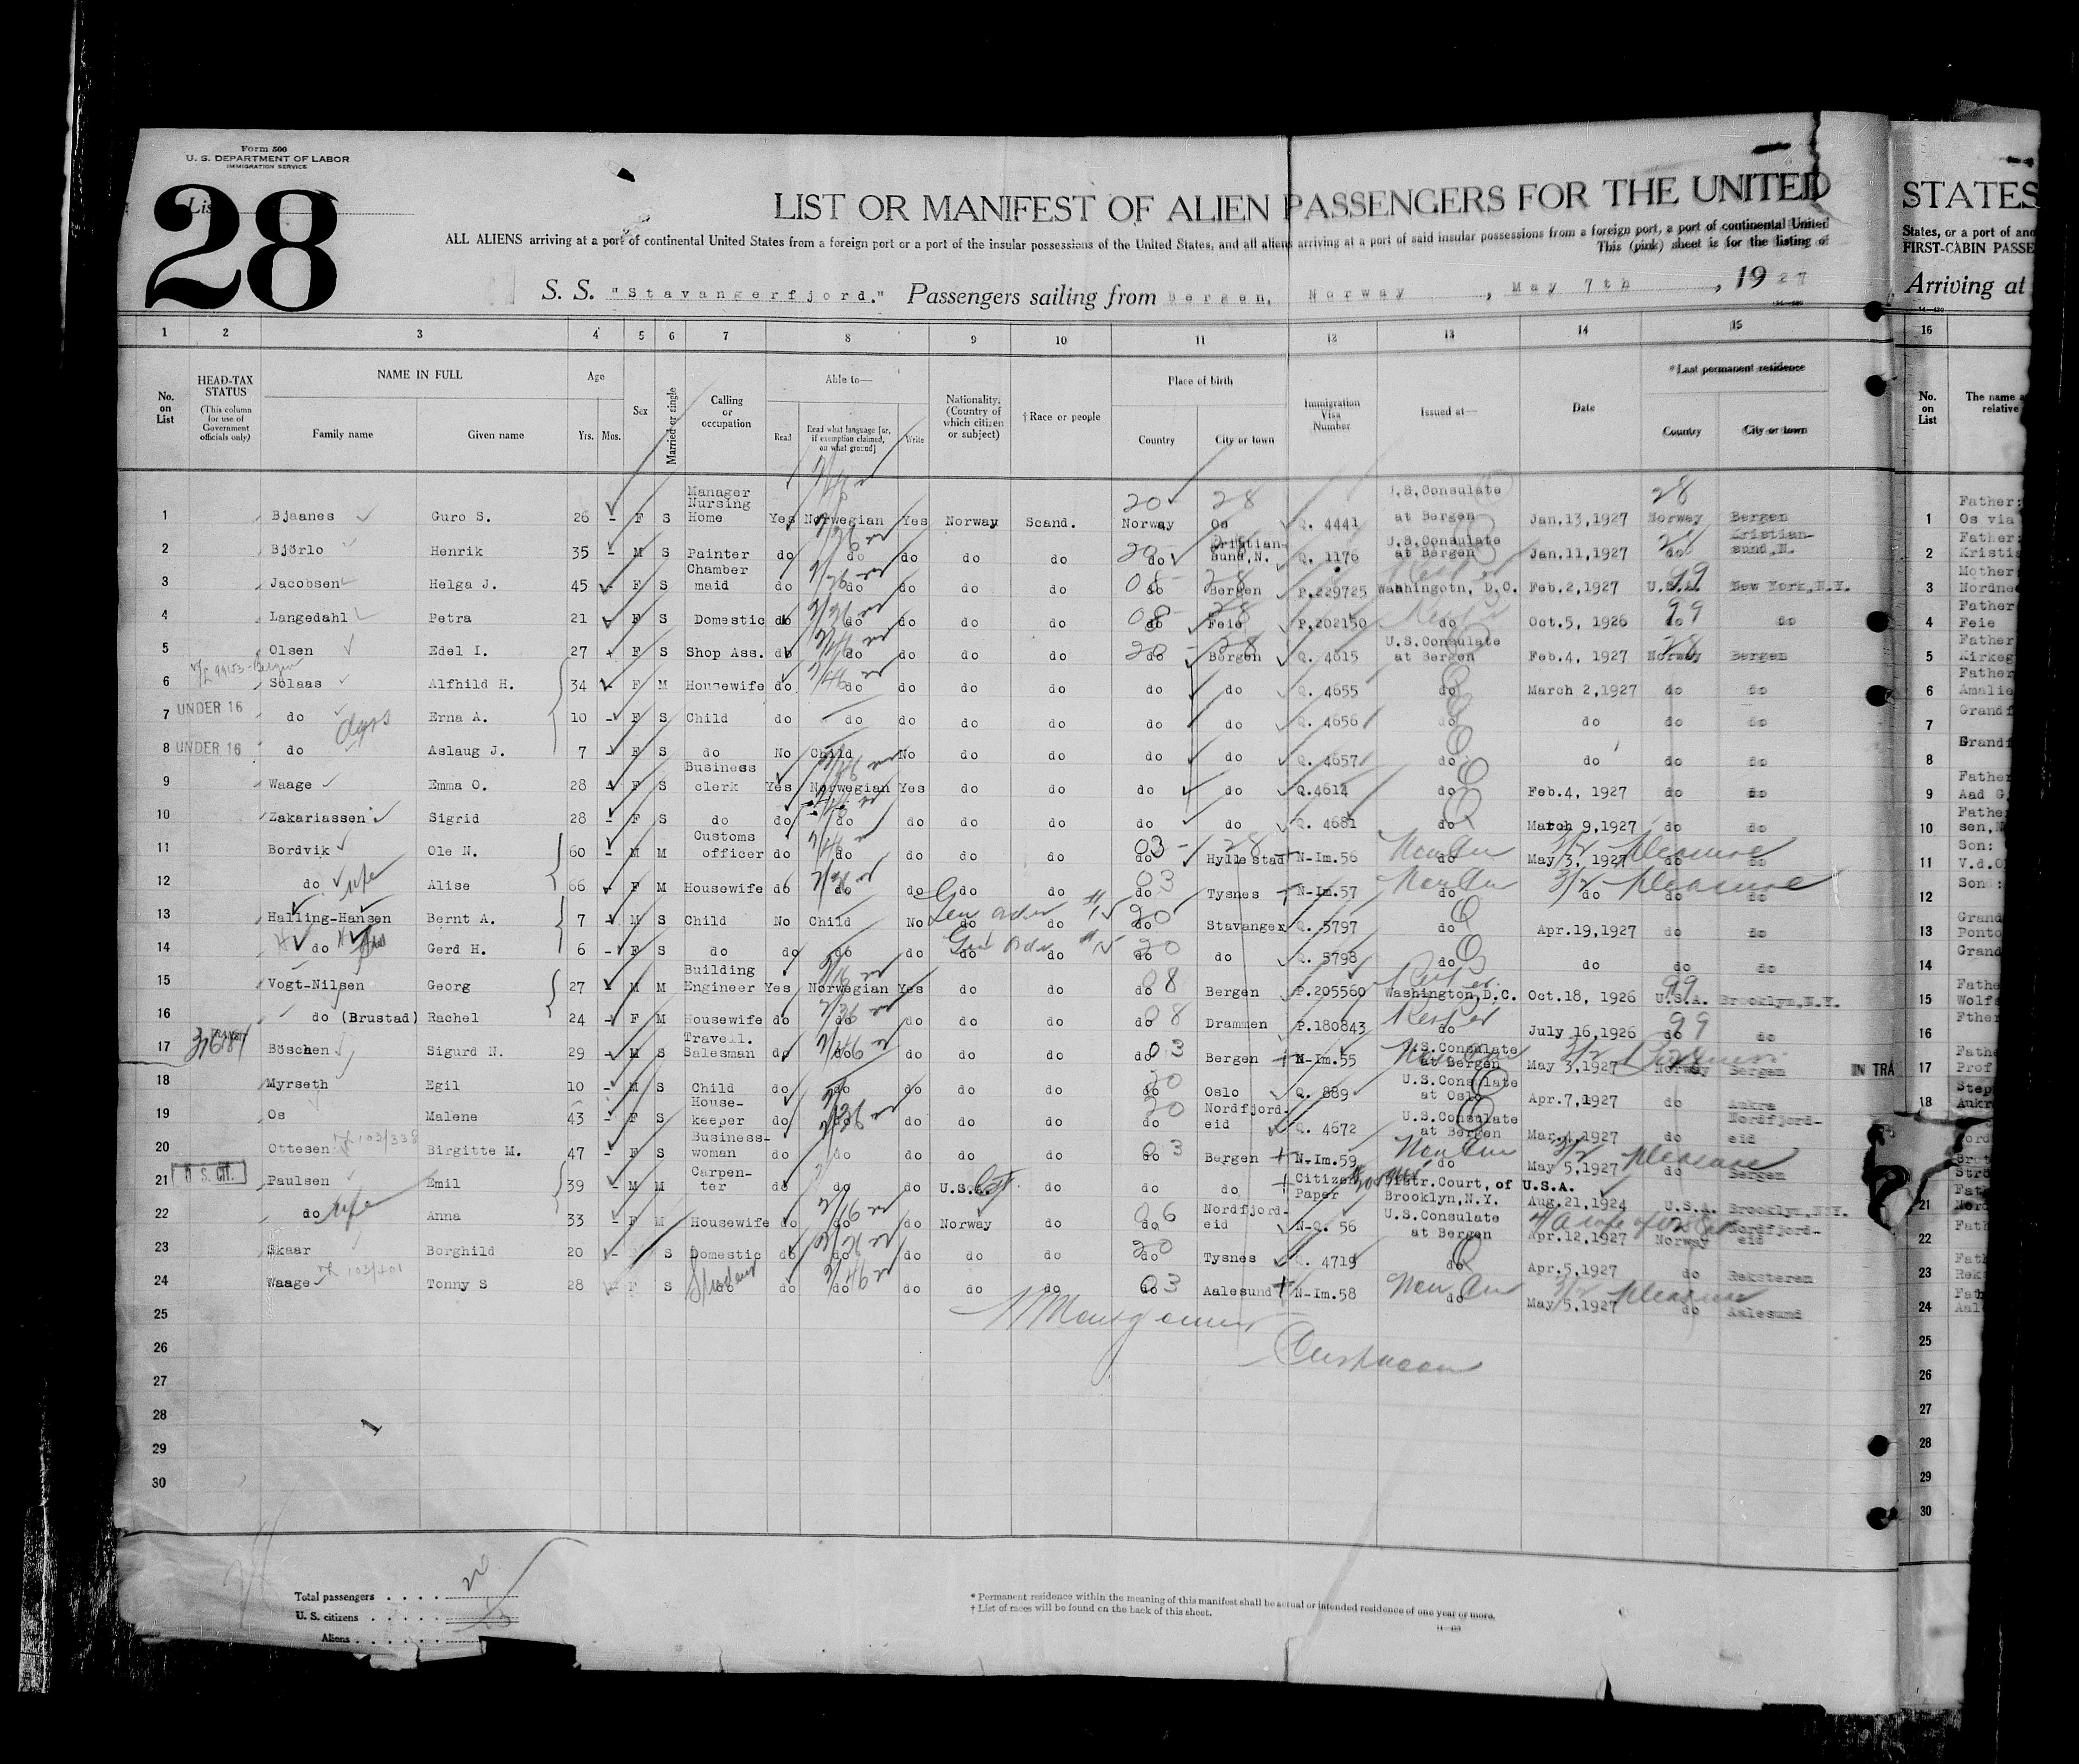 Form 500
U. S. DEPARTMENT OF LABOR
IMMIGRATION SERVICE
List
28
LIST OR MANIFEST OF ALIEN PASSENGERS FOR THE UNITED
STATES
ALL ALIENS arriving at a port of continental United States from a foreign port or a port of the insular possessions of the United States, and all aliens arriving at a port of said insular possessions from a foreign port, a port of continental United
States, or a port of
This (pink) sheet is for the listing of
FIRST-CABIN PASSE
S. S. "Stavangerfjord." Passengers sailing from Bergen, Norway, May 7th, 1927
Arriving at
1 2 3 4 5 6 7 8 9 10 11 12 13 14 15 16
No. on List
HEAD-TAX STATUS (This column for use of Government officials only)
NAME IN FULL
Family name Given name
Age Yrs. Mos.
Sex
Married or single
Calling or occupation
Able to—
Read Read what language [or, if exemption claimed, on what ground] Write
Nationality. (Country of which citizen or subject)
†Race or people
Place of birth
Country City or town
Immigration Visa Number
Issued at—
Date
*Last permanent residence
Country City or town
No. on List
The name a
relative
1 Bjaanes Guro S. 26 - F S Manager Nursing Home Yes Norwegian Yes Norway Scand. Norway Os Q. 4441 U.S.Consulate at Bergen Jan.13,1927 Norway Bergen
2 Björlo Henrik 35 - M S Painter do do do do do do Kristian-sund,N. Q. 1176 U.S.Consulate at Bergen Jan.11,1927 do Kristian-sund,N.
3 Jacobsen Helga J. 45 F S Chamber maid do do do do do do Bergen P.229725 Washingotn, D.C. Feb.2,1927 U.S.A. New York,N.Y.
4 Langedahl Petra 21 F S Domestic do do do do do do Feie P.202150 do Oct.5, 1926 do do
5 Olsen Edel I. 27 F S Shop Ass. do do do do do do Bergen Q. 4615 U.S.Consulate at Bergen Feb.4, 1927 Norway Bergen
6 Solaas Alfhild H. 34 F M Housewife do do do do do do do Q. 4655 do March 2,1927 do do
7 UNDER 16 do Erna A. 10 - F S Child do do do do do do do Q. 4656 do do do do
8 UNDER 16 do Aslaug J. 7 F S do No Child No do do do do Q. 4657 do do do do
9 Waage Emma O. 28 F S Business clerk Yes Norwegian Yes do do do do Q.4614 do Feb.4, 1927 do do
10 Zakariassen Sigrid 28 - F S do do do do do do do do Q. 4681 do March 9,1927 do do
11 Bordvik Ole N. 60 - M M Customs officer do do do do do do Hyllestad N-Im.56 do May 3, 1927 do do
pleasure
12 do wife Alise 66 F M Housewife do do do do do do Tysnes N-Im.57 do do do do
pleasure
13 Halling-Hansen Bernt A. 7 M S Child No Child No do do do Stavanger Q. 5797 do Apr.19,1927 do do
14 do Gerd H. 6 - F S do do do do do do do do Q. 5798 do do do do
15 Vogt-Nilsen Georg 27 M M Building Engineer Yes Norwegian Yes do do do Bergen P.205560 Washington,D.C. Oct.18, 1926 U.S.A. Brooklyn,N.Y.
16 do (Brustad) Rachel 24 F M Housewife do do do do do do Drammen P.180843 do July 16,1926 do do
17 Böschen Sigurd N. 29 M S Travell. Salesman do do do do do do Bergen N-Im.55 U.S.Consulate at Bergen May 3,1927 Norway Bergen IN TRA
18 Myrseth Egil 10 - M S Child do do do do do do Oslo Q. 889 U.S.Consulate at Oslo Apr.7,1927 do Aukra
19 Os Malene 43 - F S House-keeper do do do do do do Nordfjord-eid Q. 4672 U.S.Consulate at Bergen Mar.4,1927 do Nordfjord-eid
20 Ottesen Birgitte M. 47 - F S Business-woman do do do do do do Bergen N-Im.59 do May 5,1927 do Bergen
pleasure
21 U.S.CIT. Paulsen Emil 39 - M M Carpen-ter do do do U.S.A. do do do Citizen Paper Distr.Court, of U.S.A. Brooklyn,N.Y. Aug.21,1924 U.S.A. Brooklyn,N.Y.
22 do wife Anna 33 - F M Housewife do do do Norway do do Nordfjord-eid N-Q. 56 U.S.Consulate at Bergen Apr.12,1927 Norway Nordfjord-eid
23 Skaar Borghild 20 - S Domestic do do do do do do Tysnes Q. 4719 do Apr.5,1927 do Reksteren
24 Waage Tonny S 28 F S do do do do do do do Aalesund N-Im.58 do May 5,1927 do Aalesund
pleasure
25
26
27
28
29
30
Total passengers
U. S. citizens
Aliens
* Permanent residence within the meaning of this manifest shall be actual or intended residence of one year or more.
† List of races will be found on the back of this sheet.